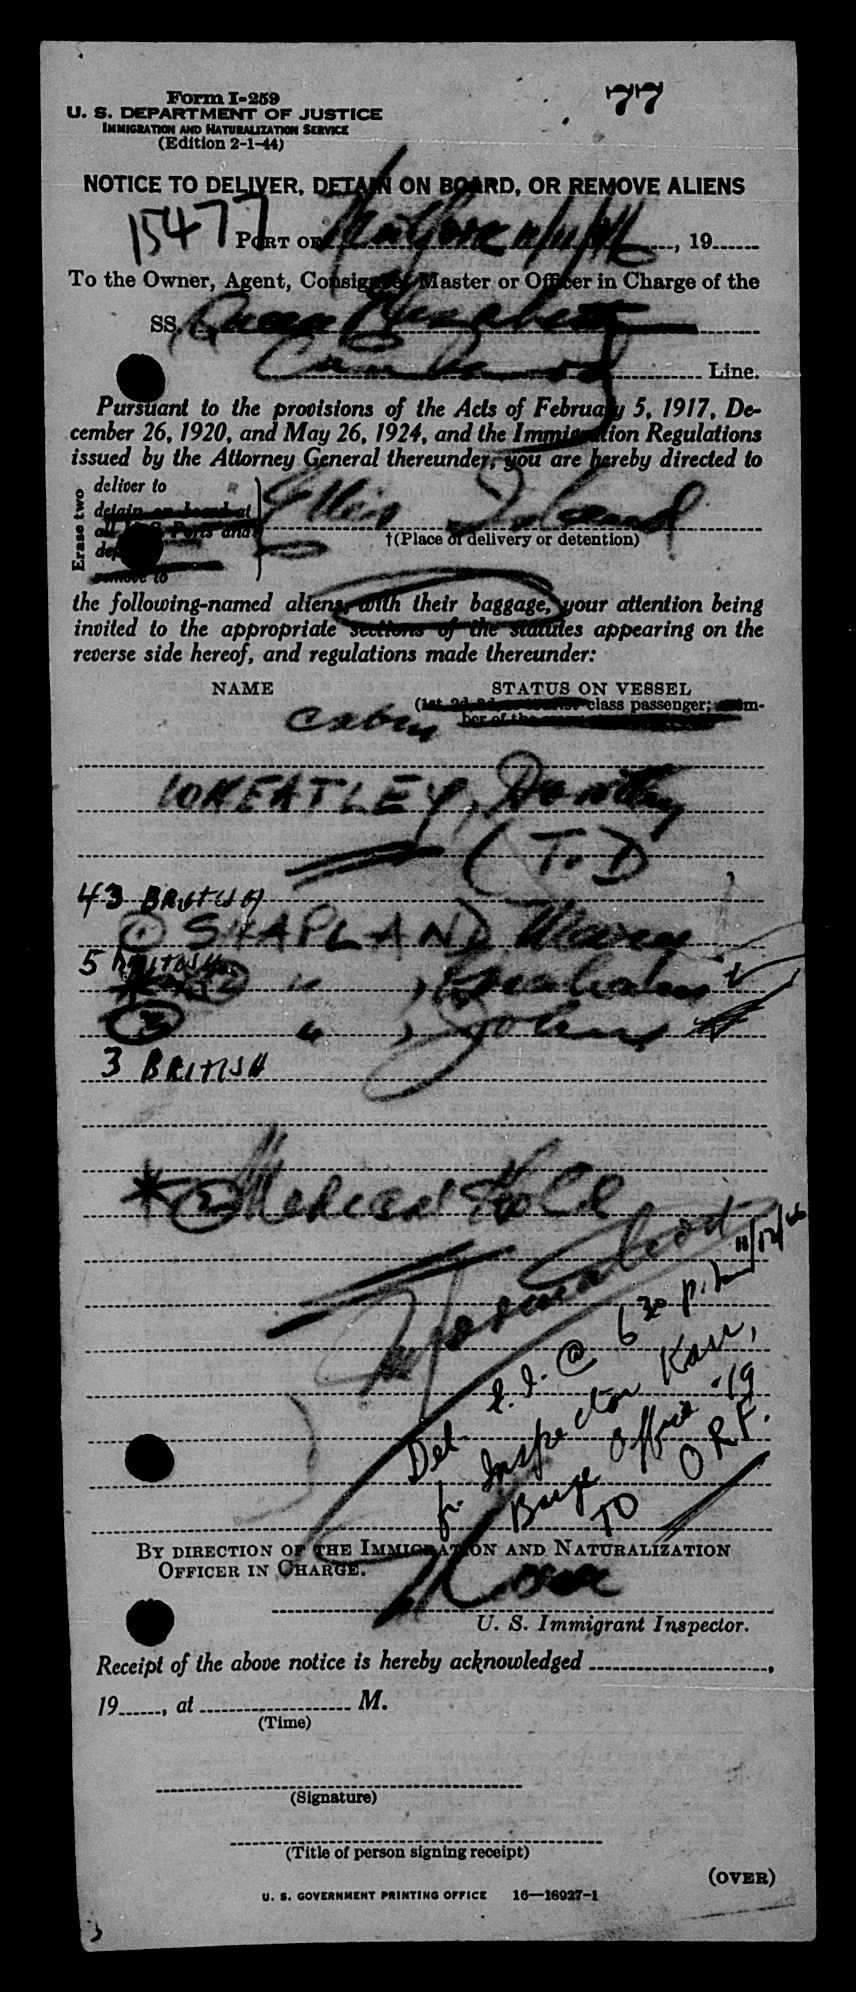 Form I-259
77
U. S. DEPARTMENT OF JUSTICE
IMMIGRATION AND NATURALIZATION SERVICE
(Edition 2-1-44)
NOTICE TO DELIVER, DETAIN ON BOARD, OR REMOVE ALIENS
15477
PORT OF New York 11/11/46, 19
To the Owner, Agent, Consignee, Master or Officer in Charge of the
SS. Queen Elizabeth
Line.
Pursuant to the provisions of the Acts of February 5, 1917, De-
cember 26, 1920, and May 26, 1924, and the Immigration Regulations
issued by the Attorney General thereunder, you are hereby directed to
Erase two
deliver to
detain on board at
all U. S. Ports and
remove to
Ellis Island
†(Place of delivery or detention)
the following-named aliens, with their baggage, your attention being
invited to the appropriate sections of the statutes appearing on the
reverse side hereof, and regulations made thereunder:
NAME STATUS ON VESSEL
class passenger; mem-
ber of the
cabin
WHEATLEY, Dorothy
(T. D
43 BRITISH
① SHAPLAND
5 BRITISH
② " , Graham
③ " , John
3 BRITISH
* ② Medical Hold
11/12/46
Del. E.I. @ 6 30 p.m
fr. Inspector Karr,
Barge Office -19
TO O.R.F.
BY DIRECTION OF THE IMMIGRATION AND NATURALIZATION
OFFICER IN CHARGE.
U. S. Immigrant Inspector.
Receipt of the above notice is hereby acknowledged ,
19 , at M.
(Time)
(Signature)
(Title of person signing receipt)
(OVER)
U. S. GOVERNMENT PRINTING OFFICE 16—16927-1